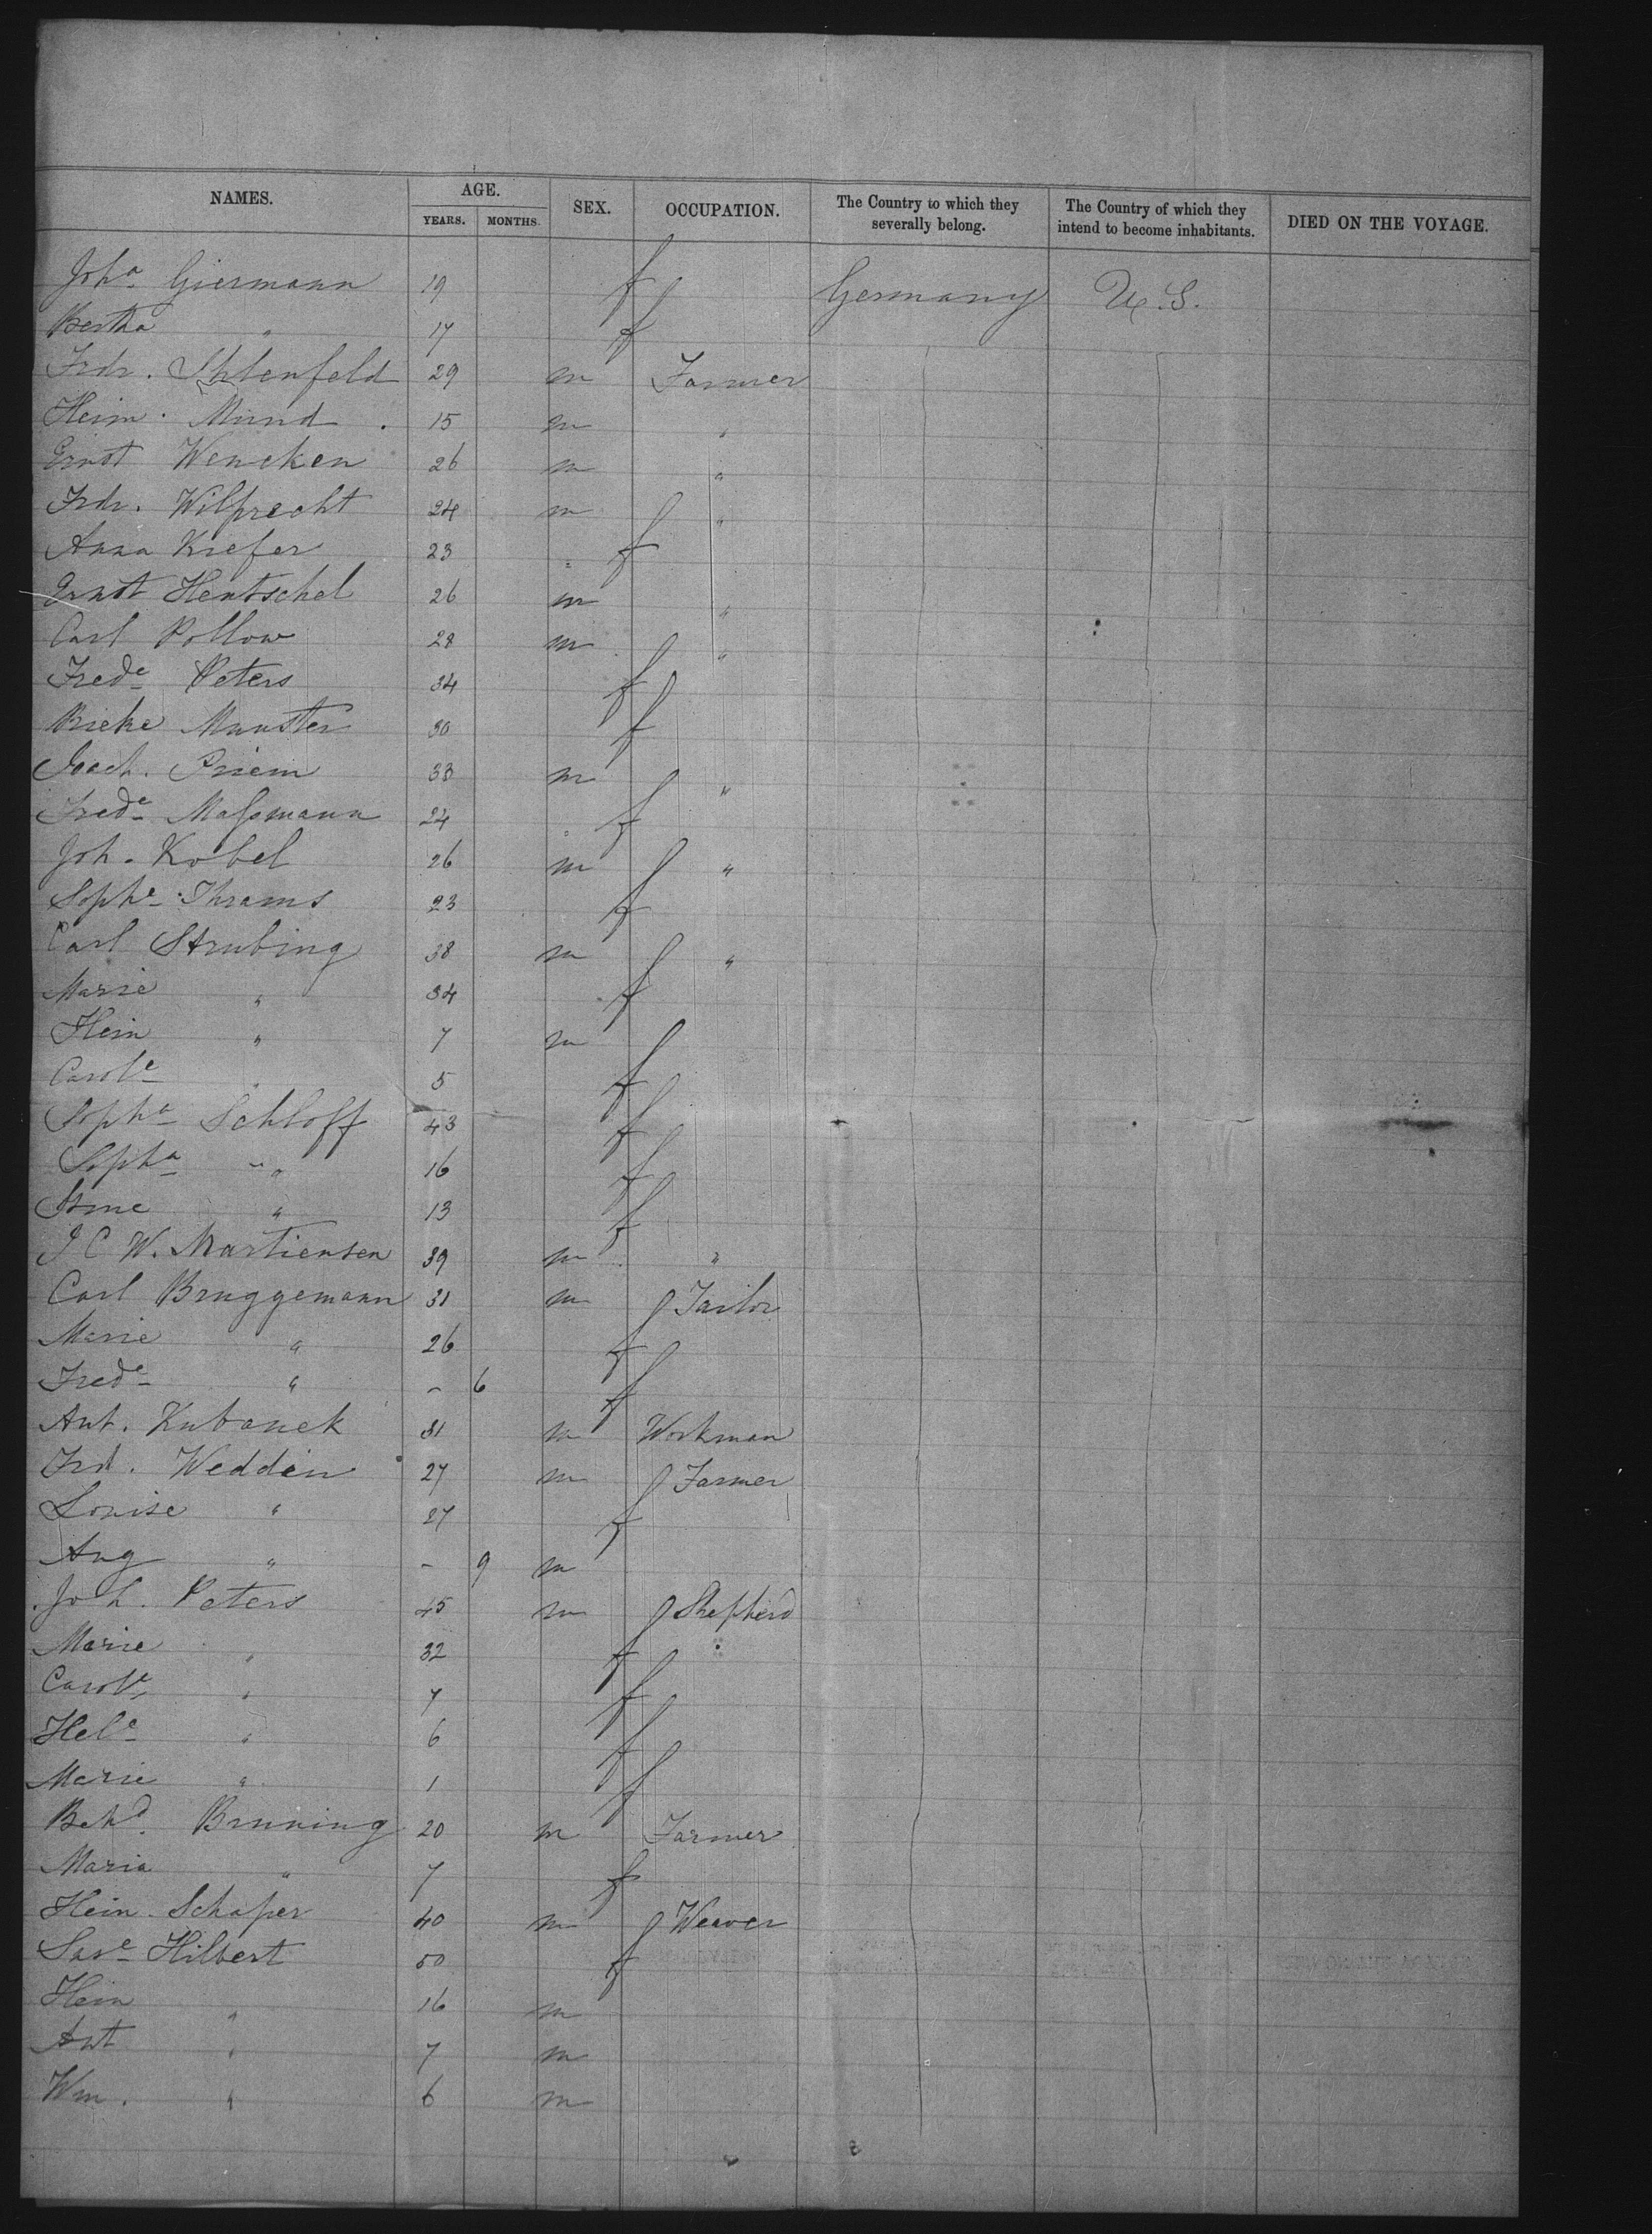 NAMES. AGE. SEX. OCCUPATION. The Country to which they severally belong. The Country of which they intend to become inhabitants. DIED ON THE VOYAGE.
YEARS. MONTHS.
Joha Giermann 19 f Germany U.S.
Bertha " 17 f
Frdr. Ihlenfeld 29 m Farmer
Hein. Mund 15 m "
Ernst Wencken 26 m "
Frdr. Wilprecht 24 m "
Anna Kiefer 23 f
Ernst Hentschel 26 m "
Carl Pollow 28 m "
Frede Peters 34 f
Rieke Munster 30 f
Joach. Priem 33 m "
Frede Massmann 24 f
Joh. Kobel 26 m "
Sophe Thrams 23 f
Carl Strubing 38 m "
Marie " 34 f
Hein " 7 m
Carole " 5 f
Sopha Schloff 43 f
Sopha " 16 f
" 13 f
J C W. Martiensen 39 m "
Carl Bruggemann 31 m Tailor
Marie " 26 f
Frede " - 6 f
Ant. Kubanek 31 m Workman
Frd. Weddin 27 m Farmer
Louise " 27 f
Aug " - 9 m
Joh. Peters 45 m Shepherd
Marie " 32 f
Carole " 7 f
Hele " 6 f
Marie " 1 f
Behd. Bruning 20 m Farmer
Maria " 7 f
Hein. Schaper 40 m Weaver
Hilbert 50 f
Hein " 16 m
Ant " 7 m
Wm. " 6 m